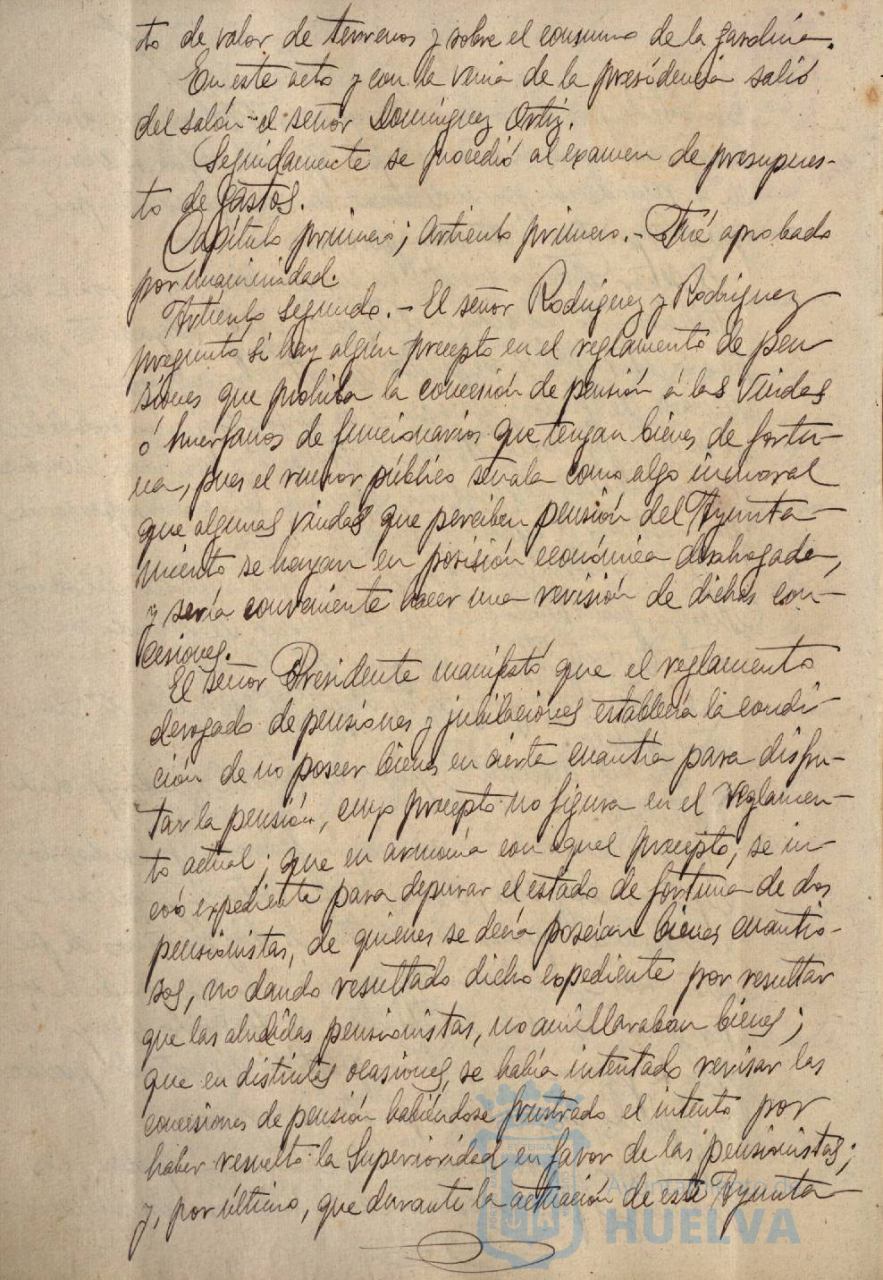 to de valor de terrenos y sobre el consumo de la gasolina.
En este acto y con la venia de la presidencia salió
del salón el señor Domínguez Ortiz.
Seguidamente se procedió al examen de presupues-
to de gastos.
Capítulo primero; Artículo primero.- Fué aprobado
por unanimidad.
Artículo segundo.- El señor Rodríguez y Rodríguez
preguntó si hay algún precepto en el reglamento de pen
siones que prohiba la concesión de pensión á las viudas
ó huerfanos de funcionarios que tengan bienes de fortu-
na, pues el rumor público señala como algo inmoral
que algunas viudas que perciben pensión del Ayunta-
miento se hayan en posisión económica desahogada,
y sería conveniente hacer una revisión de dichas con-
cesiones.
El señor Presidente manifestó que el reglamento
derogado de pensiones y jubilaciones establecía la condi-
ción de no poseer bienes en cierta cuantía para disfru-
tar la pensión, cuyo precepto no figura en el reglamen-
to actual; que en armonía con aquel precepto, se in-
coó expediente para depurar el estado de fortuna de dos
pensionistas, de quienes se decía poseían bienes cuantio-
sos, no dando resultado dicho expediente por resultar
que las aludidas pensionistas, no amillaraban bienes;
que en distintas ocasiones, se había intentado revisar las
concesiones de pensión habiéndose frustrado el intento por
haber resuelto la Superioridad en favor de las pensionistas;
y, por último, que durante la actuación de este Ayunta-
Ayuntamiento de
HUELVA